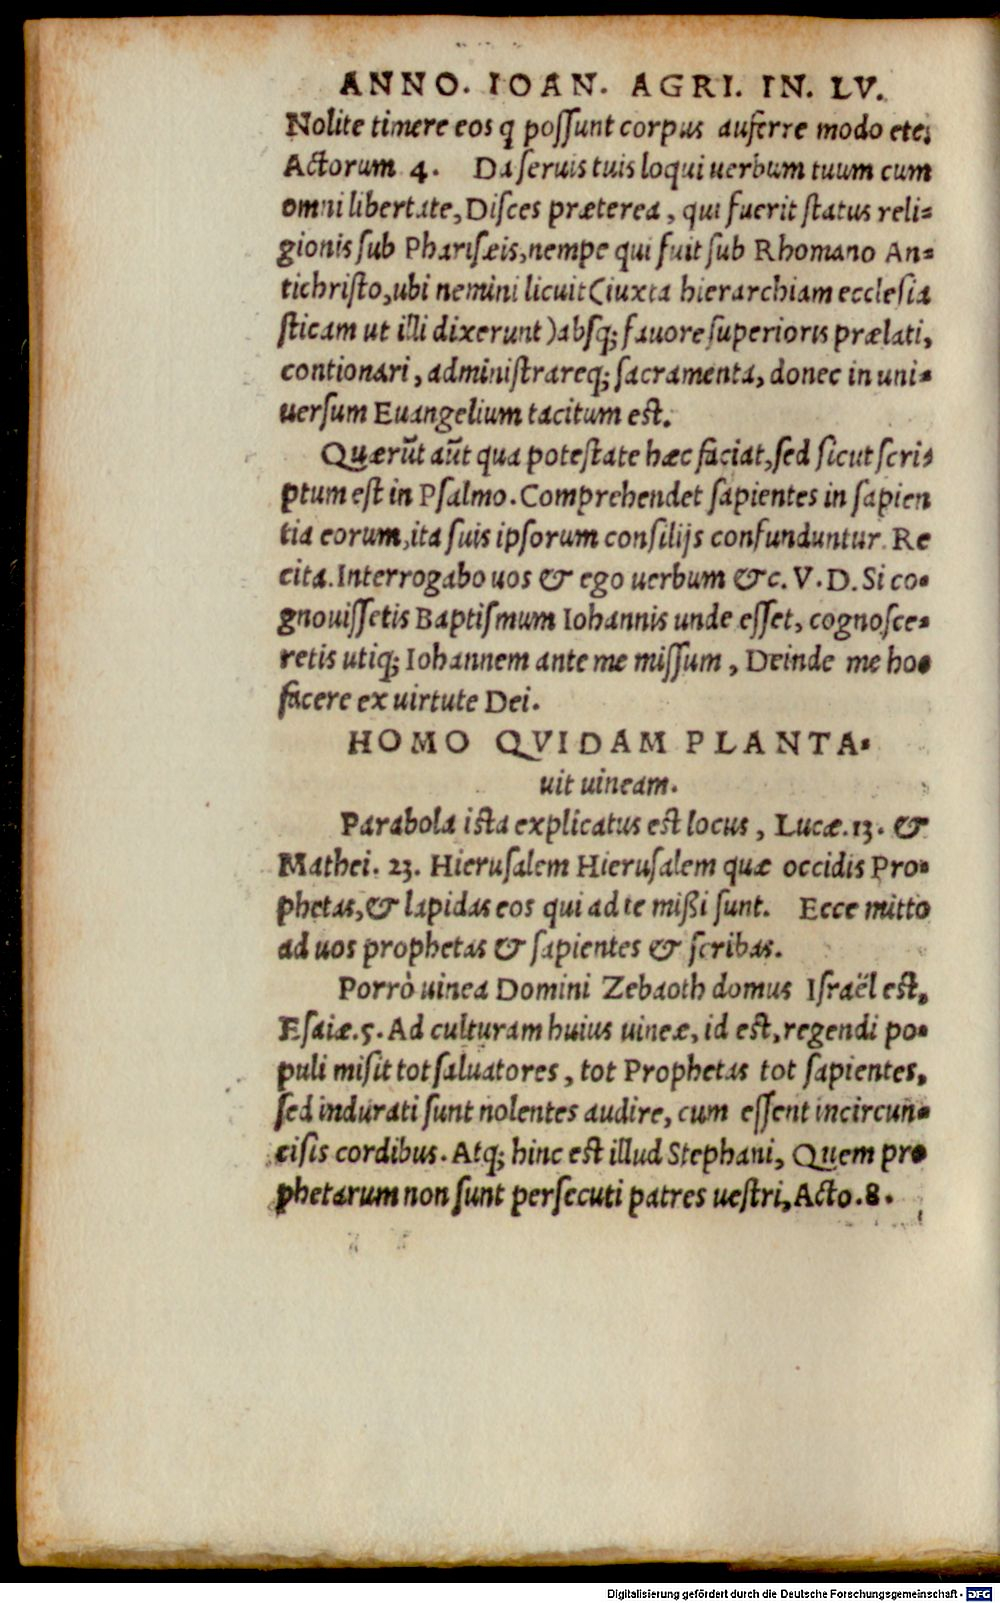 ANNO. IOAN. AGRI. IN. LV.
Nolite timere eos q̃ possunt corpus auferre modo etc.
Actorum 4. Da seruis tuis loqui uerbum tuum cum
omni libertate, Disces præterea, qui fuerit status reli-
gionis sub Pharisæis, nempe qui fuit sub Rhomano An-
tichristo, ubi nemini licuit (iuxta hierarchiam ecclesia
sticam ut illi dixerunt) absq; fauore superioris prælati,
contionari, administrareq; sacramenta, donec in uni-
uersum Euangelium tacitum est.
Quærūt aūt qua potestate hæc faciat, sed sicut scri-
ptum est in Psalmo. Comprehendet sapientes in sapien
tia eorum, ita suis ipsorum consilijs confunduntur. Re
cita. Interrogabo uos & ego uerbum &c. V. D. Si co-
gnouissetis Baptismum Iohannis unde esset, cognosce-
retis utiq; Iohannem ante me missum, Deinde me hoc
facere ex uirtute Dei.
HOMO QVIDAM PLANTA-
uit uineam.
Parabola ista explicatus est locus, Lucæ. 13. &
Mathei. 23. Hierusalem Hierusalem quæ occidis Pro-
phetas, & lapidas eos qui ad te mißi sunt. Ecce mitto
ad uos prophetas & sapientes & scribas.
Porrò uinea Domini Zebaoth domus Israël est,
Esaiæ. 5. Ad culturam huius uineæ, id est, regendi po-
puli misit tot saluatores, tot Prophetas tot sapientes,
sed indurati sunt nolentes audire, cum essent incircun-
cisis cordibus. Atq; hinc est illud Stephani, Quem pro
phetarum non sunt persecuti patres uestri, Acto. 8.
Digitalisierung gefördert durch die Deutsche Forschungsgemeinschaft - DFG